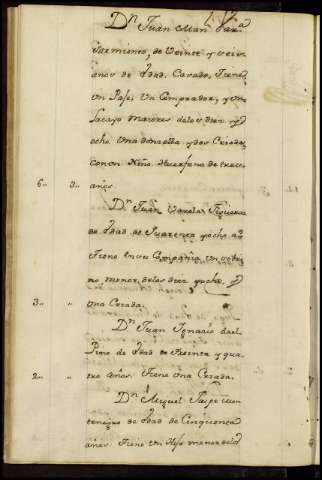 Dn Juan Man.
Sarmiento, de Veinte y seis
años de Edad. Casado, Tiene
Un Paje, Un Comprador, y Un
Lacayo maiores de los diez y
ocho. Una donzella y dos Criadas,
con un Niño Huerfano de trece
6,, 3,, años.
Dn Juan Varela Figueroa
de Edad de Quarenta y ocho añ
Tiene en su Compañia un sobri
no menor, de los diez y ocho, y
3,, ,, Una Criada.
Dn Juan Ignacio del
Pino de Edad de Treinta y qua
2,, ,, tro años. Tiene Una Criada.
Dn Miguel
de Edad de Cinquenta
años. Tiene Un Hijo menor de los